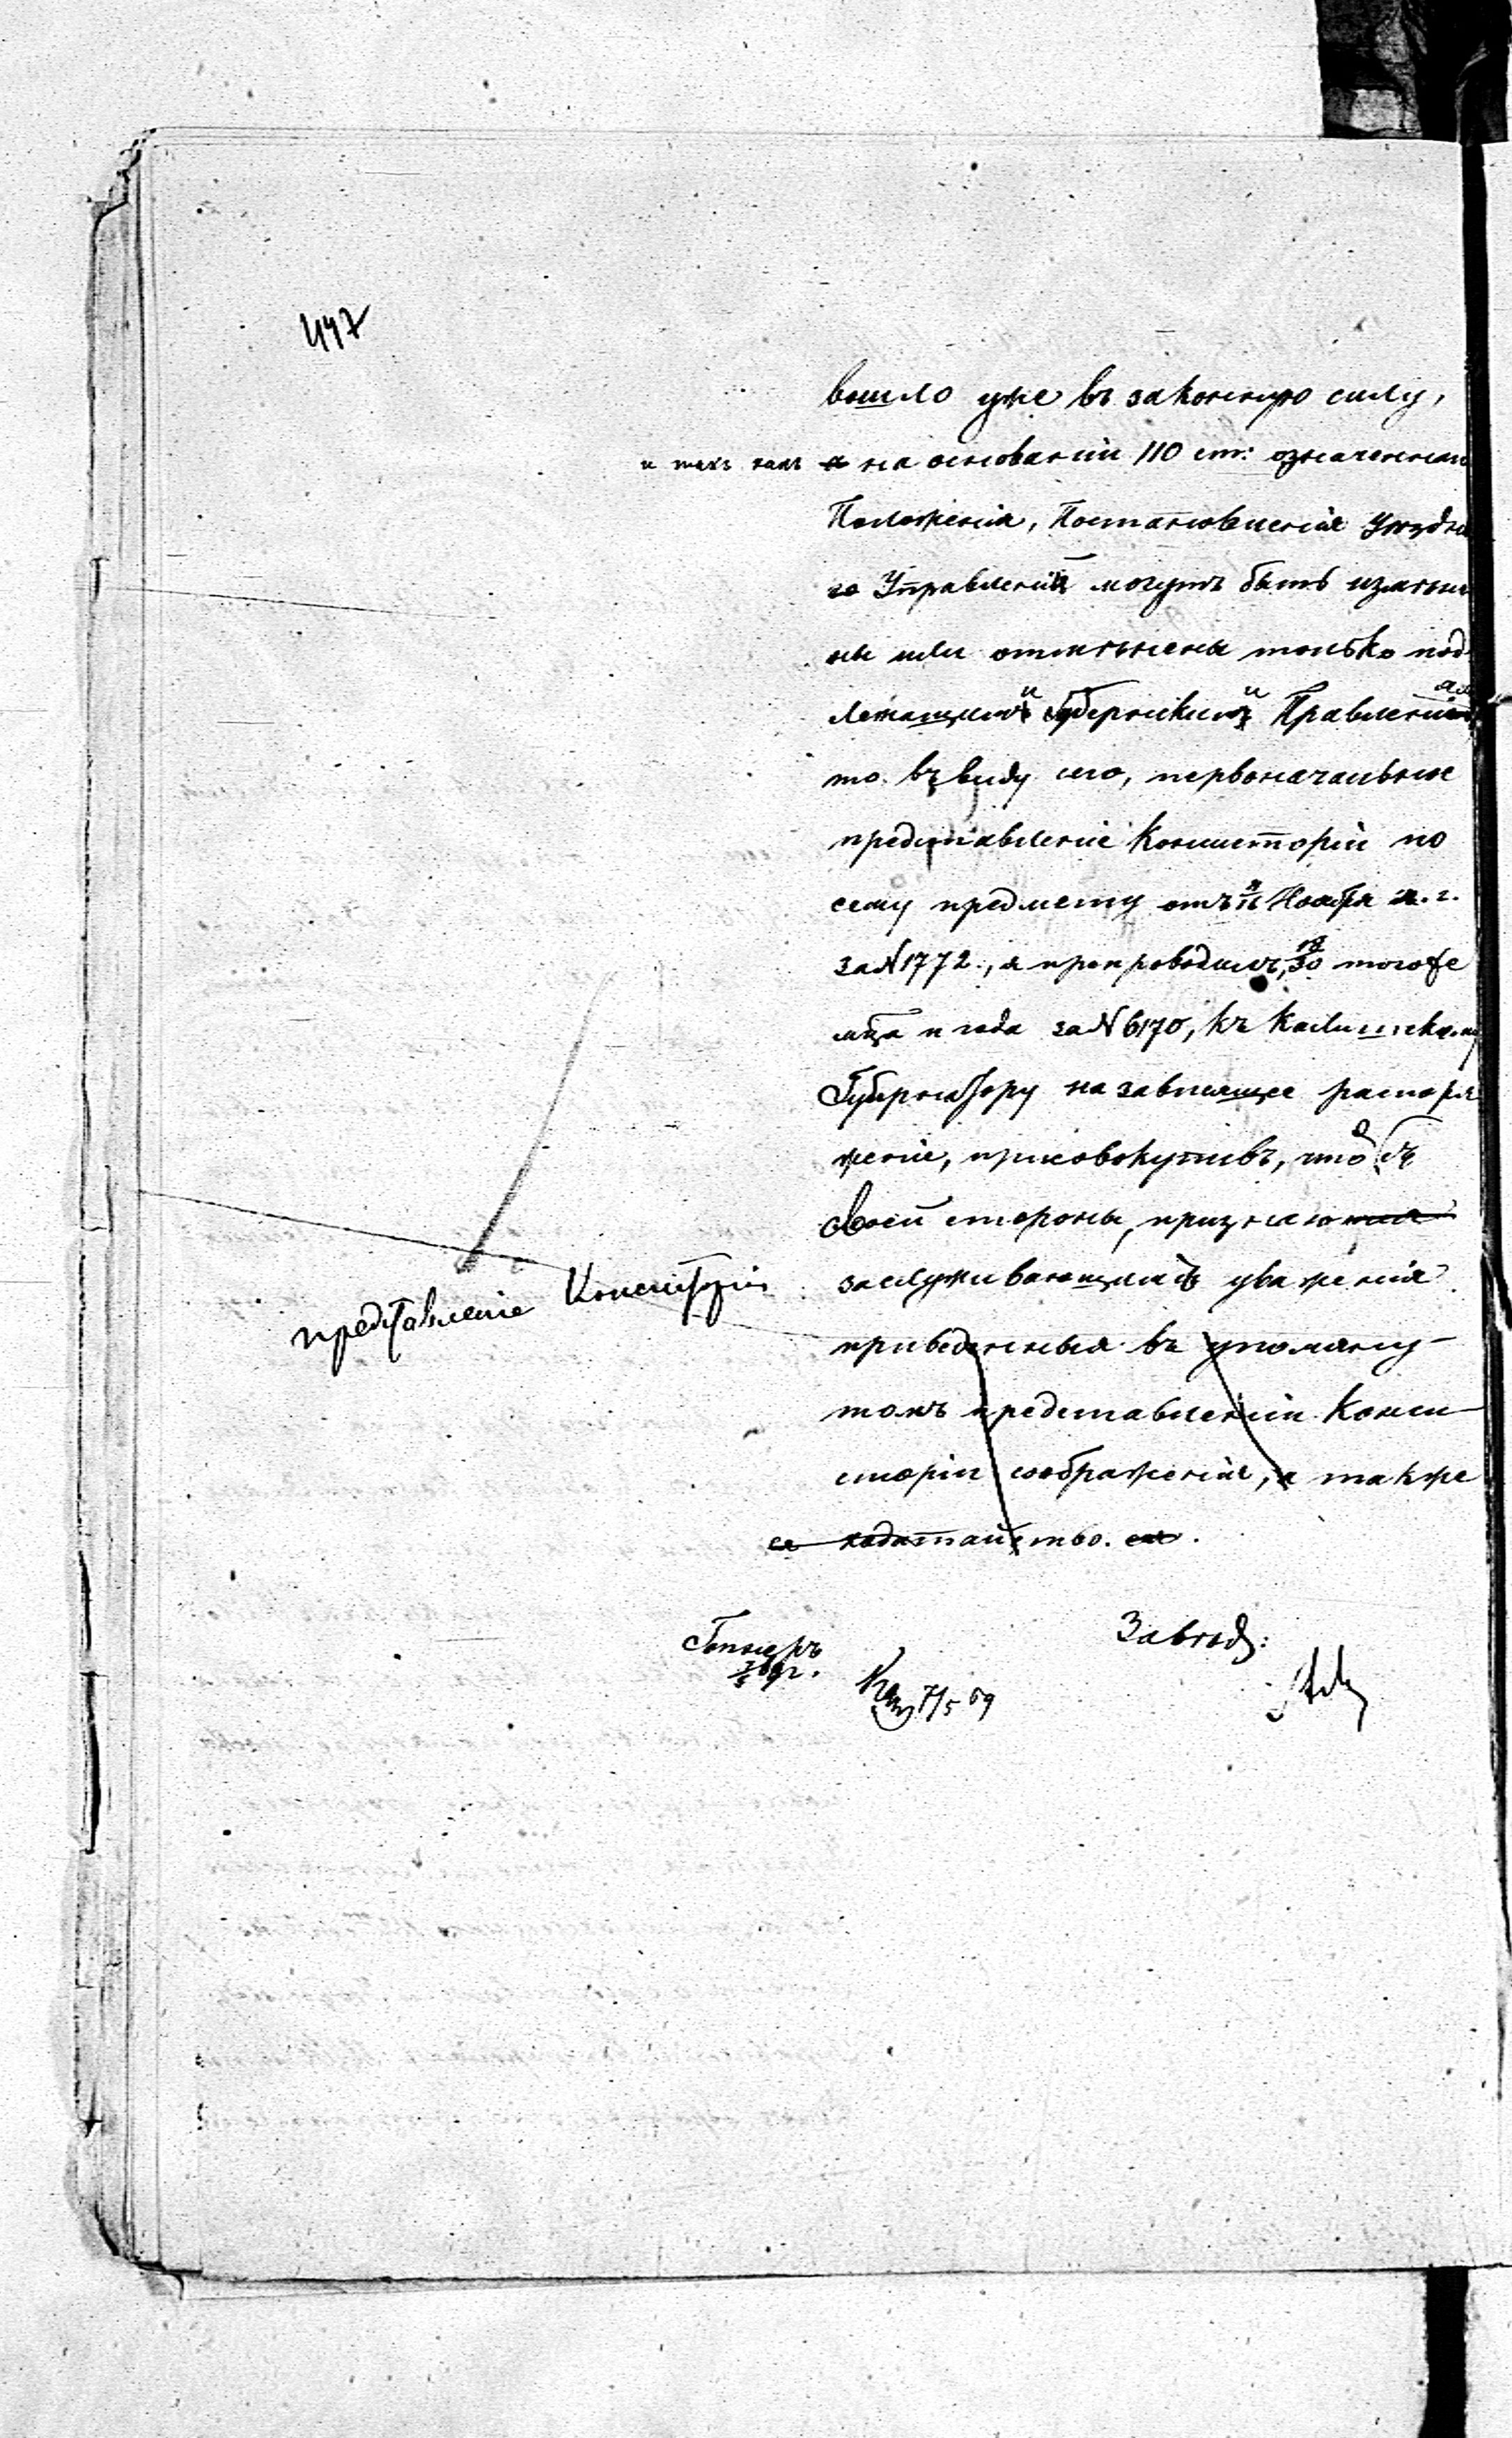 447
вошло уже въ законную силу,
и такъ какъ на основаніи 110 ст: означеннаго
Положенія, Постановленія Уѣздна
го Управленія могутъ быть измѣне
ны или отмѣнены только под
лежащими Губернскими Правленіями
то въ виду сего, первоначальное
представленіе Консисторіи по
сему предмету отъ Ноября г.
за N 1772., я препроводилъ, 18/30 тогоже
мца и года за N 6170, къ Калишскому
Губернатору на зависящее распоря
женіе, присовокупивъ, что съ
своей стороны, признаю
заслуживающими уваженія
представленіе Консисторіи
приведенныя въ упомяну-
томъ представленіи Конси-
сторіи соображенія, а также
ея ходатайство.
Завѣд:
7/5 69